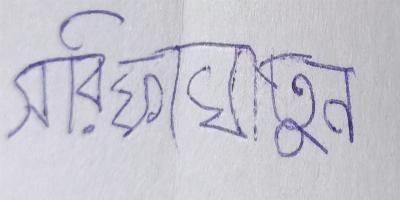 সরিফা খাতুন